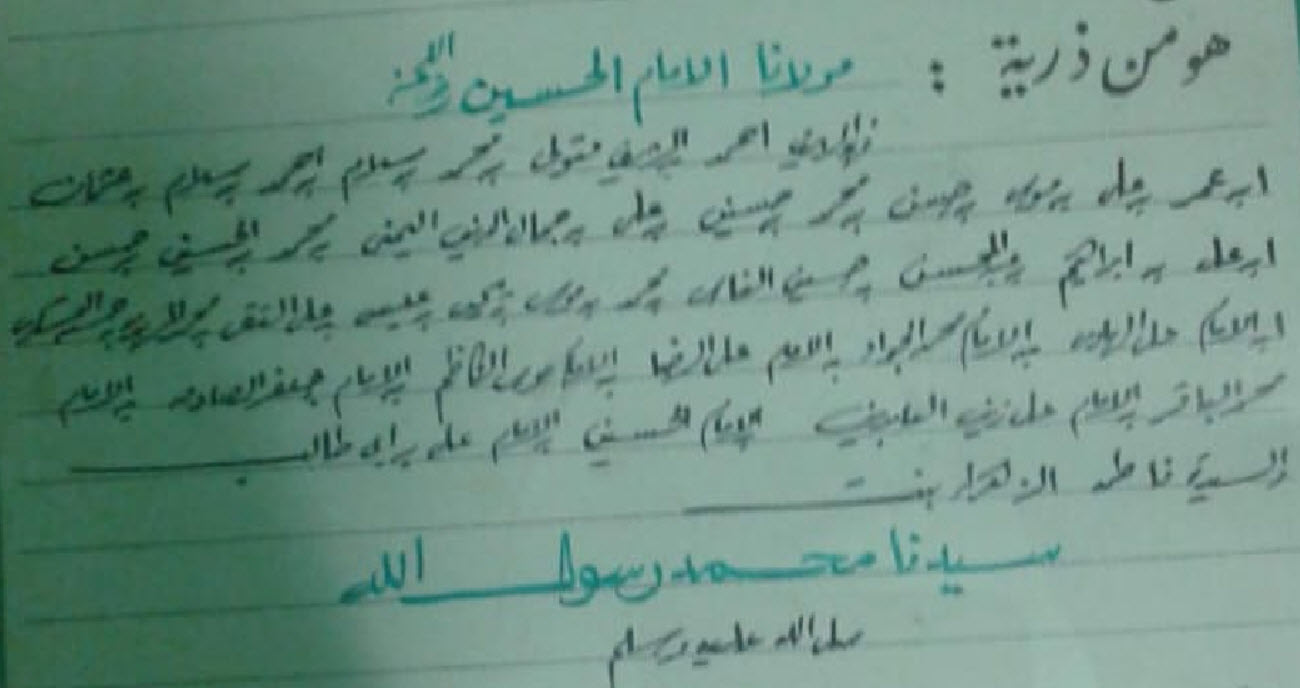 هو من ذرية : مولانا الامام الحسين رضي الله عنه
احمد متولى بن محمد بن سلام بن احمد بن سلام بن عثمان
ابن عمر بن على بن موسى بن حسن بن محمد بن حسين بن على بن جمال الدين اليمنى بن محمد بن الحسين بن حسن
ابن على بن ابراهيم بن حسين بن محمد بن موسى بن يحيى بن عيسى بن على التقى بن
ابن الامام على الهادى بن الامام محمد الجواد بن الامام على الرضا بن الامام موسى الكاظم بن الامام جعفر الصادق بن الامام
محمد الباقر بن الامام على زين العابدين بن الامام الحسين بن الامام على بن ابى طالب
والسيدة فاطمة الزهراء بنت
سيدنا محمد رسول الله
صلى الله عليه وسلم